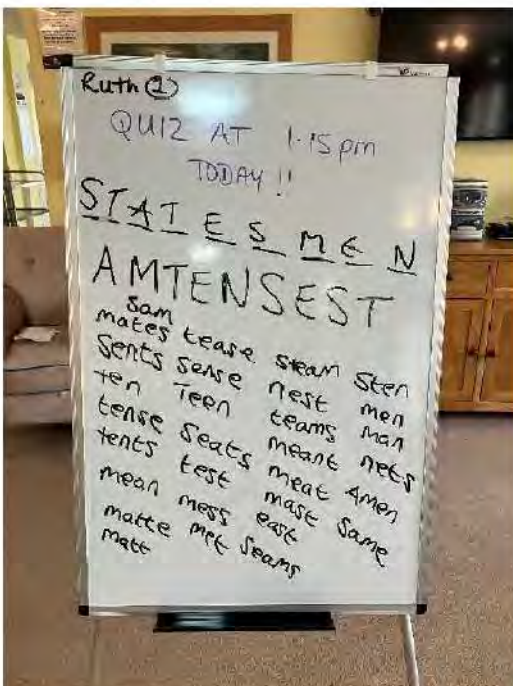 Ruth ①
QUIZ AT 1.15 pm
TODAY !!
STATESMEN
AMTENSEST
Sam
mates tease steam Sten
Sents sense nest men
ten Teen teams man
tense Seats meant nets
tents test meat Amen
mean mess mast Same
matte met east
matt Seams